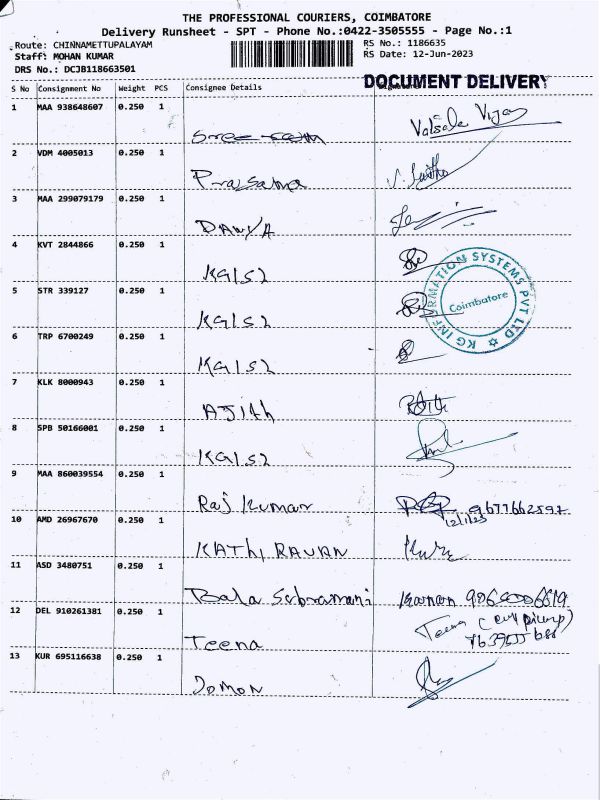 THE PROFESSIONAL COURIERS, COIMBATORE
Delivery Runsheet - SPT - Phone No.:0422-3505555 - Page No.:1
Route: CHINNAMETTUPALAYAM
RS No.: 1186635
Staff: MOHAN KUMAR
RS Date: 12-Jun-2023
DRS No.: DCJB118663501
DOCUMENT DELIVERY
S No Consignment No Weight PCS Consignee Details
1 MAA 938648607 0.250 1
Valsala Vijay
2 VDM 4005013 0.250 1
Prasanna
3 MAA 299079179 0.250 1
4 KVT 2844866 0.250 1
KGISL
5 STR 339127 0.250 1
KGISL
KG INFORMATION SYSTEMS PVT LTD
Coimbatore
6 TRP 6700249 0.250 1
KGISL
7 KLK 8000943 0.250 1
AJith
8 SPB 50166001 0.250 1
KGISL
9 MAA 860039554 0.250 1
Raj Kumar 9677662597
10 AMD 26967670 0.250 1
KATHIRAVAN
11 ASD 3480751 0.250 1
Bala Subramani
12 DEL 910261381 0.250 1
Teena Teena
13 KUR 695116638 0.250 1
JOMON